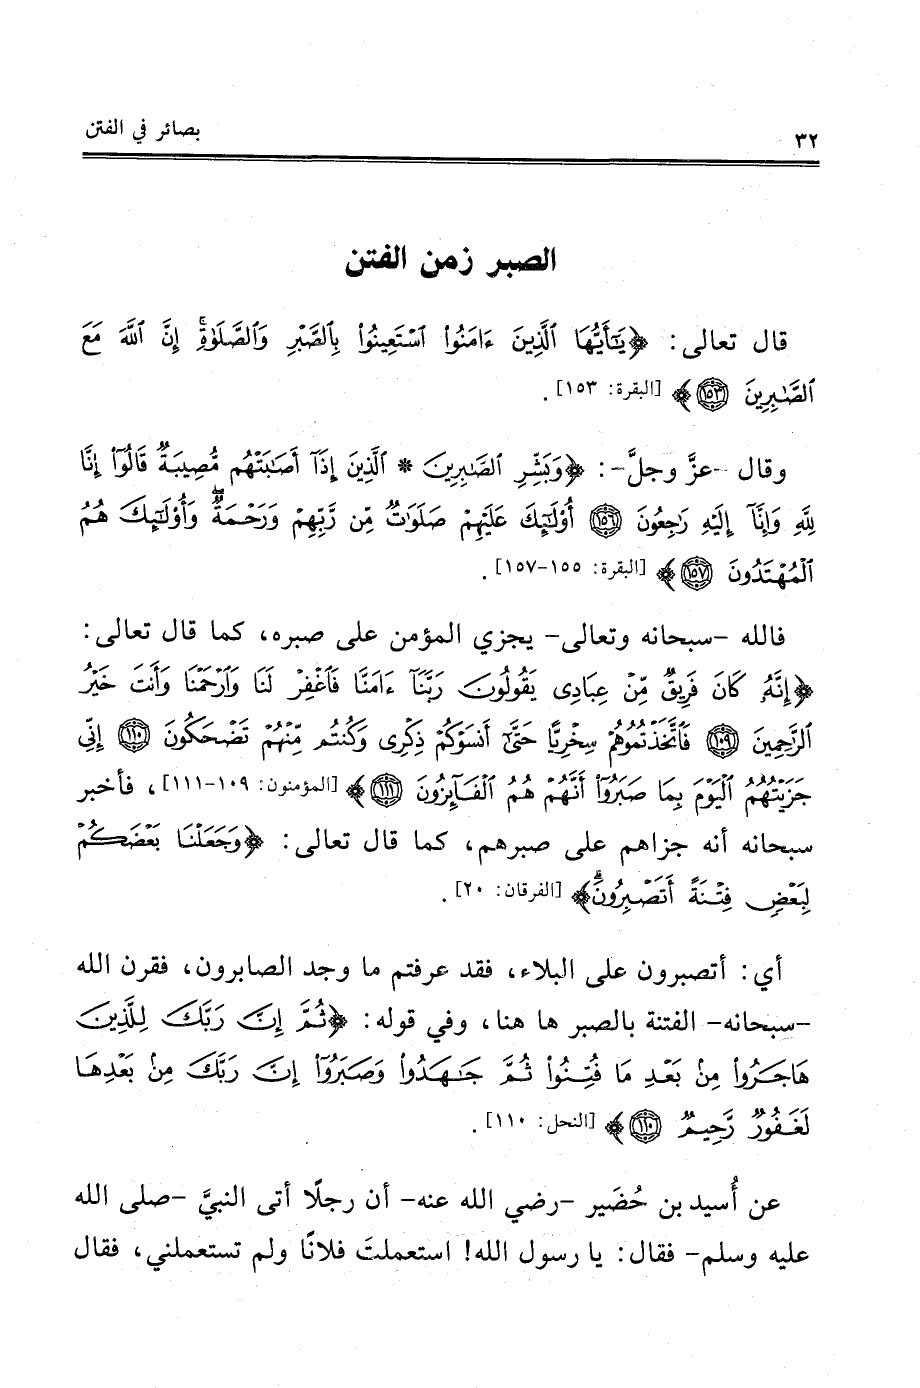 ٣٢ بصائر في الفتن
الصبر زمن الفتن
قال تعالى: ﴿يَٰٓأَيُّهَا ٱلَّذِينَ ءَامَنُوا۟ ٱسْتَعِينُوا۟ بِٱلصَّبْرِ وَٱلصَّلَوٰةِ ۚ إِنَّ ٱللَّهَ مَعَ
ٱلصَّٰبِرِينَ ١٥٣﴾ [البقرة: ١٥٣].
وقال -عزَّ وجلَّ-: ﴿وَبَشِّرِ ٱلصَّٰبِرِينَ * ٱلَّذِينَ إِذَآ أَصَٰبَتْهُم مُّصِيبَةٌ قَالُوٓا۟ إِنَّا
لِلَّهِ وَإِنَّآ إِلَيْهِ رَٰجِعُونَ ١٥٦ أُو۟لَٰٓئِكَ عَلَيْهِمْ صَلَوَٰتٌ مِّن رَّبِّهِمْ وَرَحْمَةٌ ۖ وَأُو۟لَٰٓئِكَ هُمُ
ٱلْمُهْتَدُونَ ١٥٧﴾ [البقرة: ١٥٥-١٥٧].
فالله -سبحانه وتعالى- يجزي المؤمن على صبره، كما قال تعالى:
﴿إِنَّهُۥ كَانَ فَرِيقٌ مِّنْ عِبَادِى يَقُولُونَ رَبَّنَآ ءَامَنَّا فَٱغْفِرْ لَنَا وَٱرْحَمْنَا وَأَنتَ خَيْرُ
ٱلرَّٰحِمِينَ ١٠٩ فَٱتَّخَذْتُمُوهُمْ سِخْرِيًّا حَتَّىٰٓ أَنسَوْكُمْ ذِكْرِى وَكُنتُم مِّنْهُمْ تَضْحَكُونَ ١١٠ إِنِّى
جَزَيْتُهُمُ ٱلْيَوْمَ بِمَا صَبَرُوٓا۟ أَنَّهُمْ هُمُ ٱلْفَآئِزُونَ ١١١﴾ [المؤمنون: ١٠٩-١١١]، فأخبر
سبحانه أنه جزاهم على صبرهم، كما قال تعالى: ﴿وَجَعَلْنَا بَعْضَكُمْ
لِبَعْضٍ فِتْنَةً أَتَصْبِرُونَ ۗ﴾ [الفرقان: ٢٠].
أي: أتصبرون على البلاء، فقد عرفتم ما وجد الصابرون، فقرن الله
-سبحانه- الفتنة بالصبر ها هنا، وفي قوله: ﴿ثُمَّ إِنَّ رَبَّكَ لِلَّذِينَ
هَاجَرُوا۟ مِنۢ بَعْدِ مَا فُتِنُوا۟ ثُمَّ جَٰهَدُوا۟ وَصَبَرُوٓا۟ إِنَّ رَبَّكَ مِنۢ بَعْدِهَا
لَغَفُورٌ رَّحِيمٌ ١١٠﴾ [النحل: ١١٠].
عن أُسيد بن حُضَير -رضي الله عنه- أن رجلًا أتى النبيَّ -صلى الله
عليه وسلم- فقال: يا رسول الله! استعملتَ فلانًا ولم تستعملني، فقال